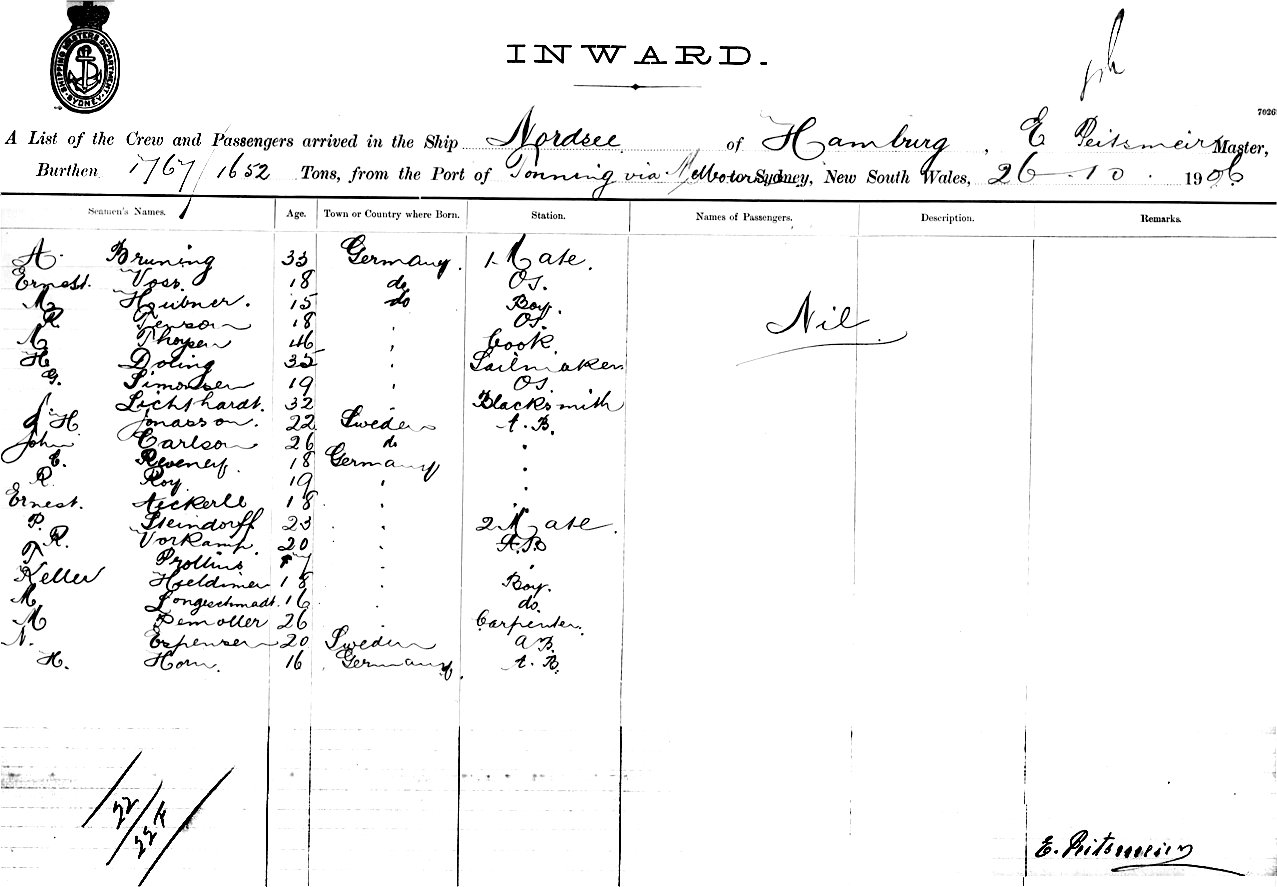 SHIPPING MASTERS DEPARTMENT SYDNEY
INWARD.
7026
A List of the Crew and Passengers arrived in the Ship Nordsee of Hamburg, E Peitsmeier Master,
Burthen 1767/1652 Tons, from the Port of Tonning via Melbourne to Sydney, New South Wales, 26.10.1906
Seamen's Names. Age. Town or Country where Born. Station. Names of Passengers. Description. Remarks.
A. Bruning 33 Germany. 1 Mate.
Ernest. Voss. 18 do OS.
M Hubner. 15 do Boy.
R 18 " OS.
M 46 " Cook.
H Doling 35 " Sailmaker
G. Simonsen 19 " OS
Lichthardt. 32 " Blacksmith
H Jonasson. 22 Sweden A.B.
John Carlson 26 do "
E. 18 Germany "
R. Roy 19 " "
Ernest. 18 " "
P. Steindorff 23 " 2 Mate.
R. Vorkamp. 20 " A.B
T Prollius 17 " "
Keller 18 " Boy.
M Longeschmadt. 16 " do.
M 26 " Carpenter.
N. Espensen 20 Sweden A.B.
H. Horn. 16 Germany. A.B.
Nil
22
22F
E. Peitsmeier